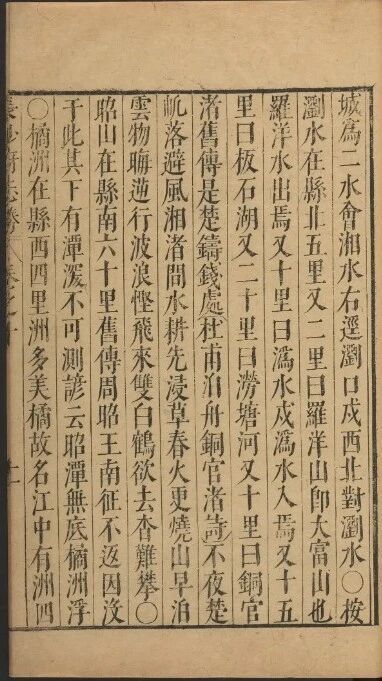 城爲二水會湘水右逕瀏口戍西北對瀏水○桉
瀏水在縣北五里又二里曰羅洋山卽大富山也
羅洋水出焉又十里曰潙水戍潙水入焉又十五
里曰板石湖又二十里曰澇塘河又十里曰銅官
渚舊傳是楚鑄錢處杜甫泊舟銅官渚詩不夜楚
㠶落避風湘渚間水耕先浸草春火更燒山早泊
雲物晦逆行波浪慳飛來雙白鶴欲去杳難攀○
昭山在縣南六十里舊傳周昭王南征不返因沒
于此其下有潭深不可測諺云昭潭無底橘洲浮
○橘洲在縣西四里洲多美橘故名江中有洲四
長沙府志
卷之十